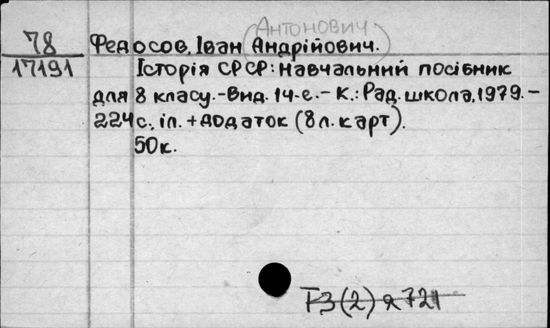 (Антонович)
78 Федосов, Іван Андрійович.
17191 Історія СРСР: Навчальний посібник
для 8 класу.-Вид. 14-е.- К.: Рад. школа, 1979.-
224с., іл. + додаток (8л. карт).
50к.
Т3(2) я721